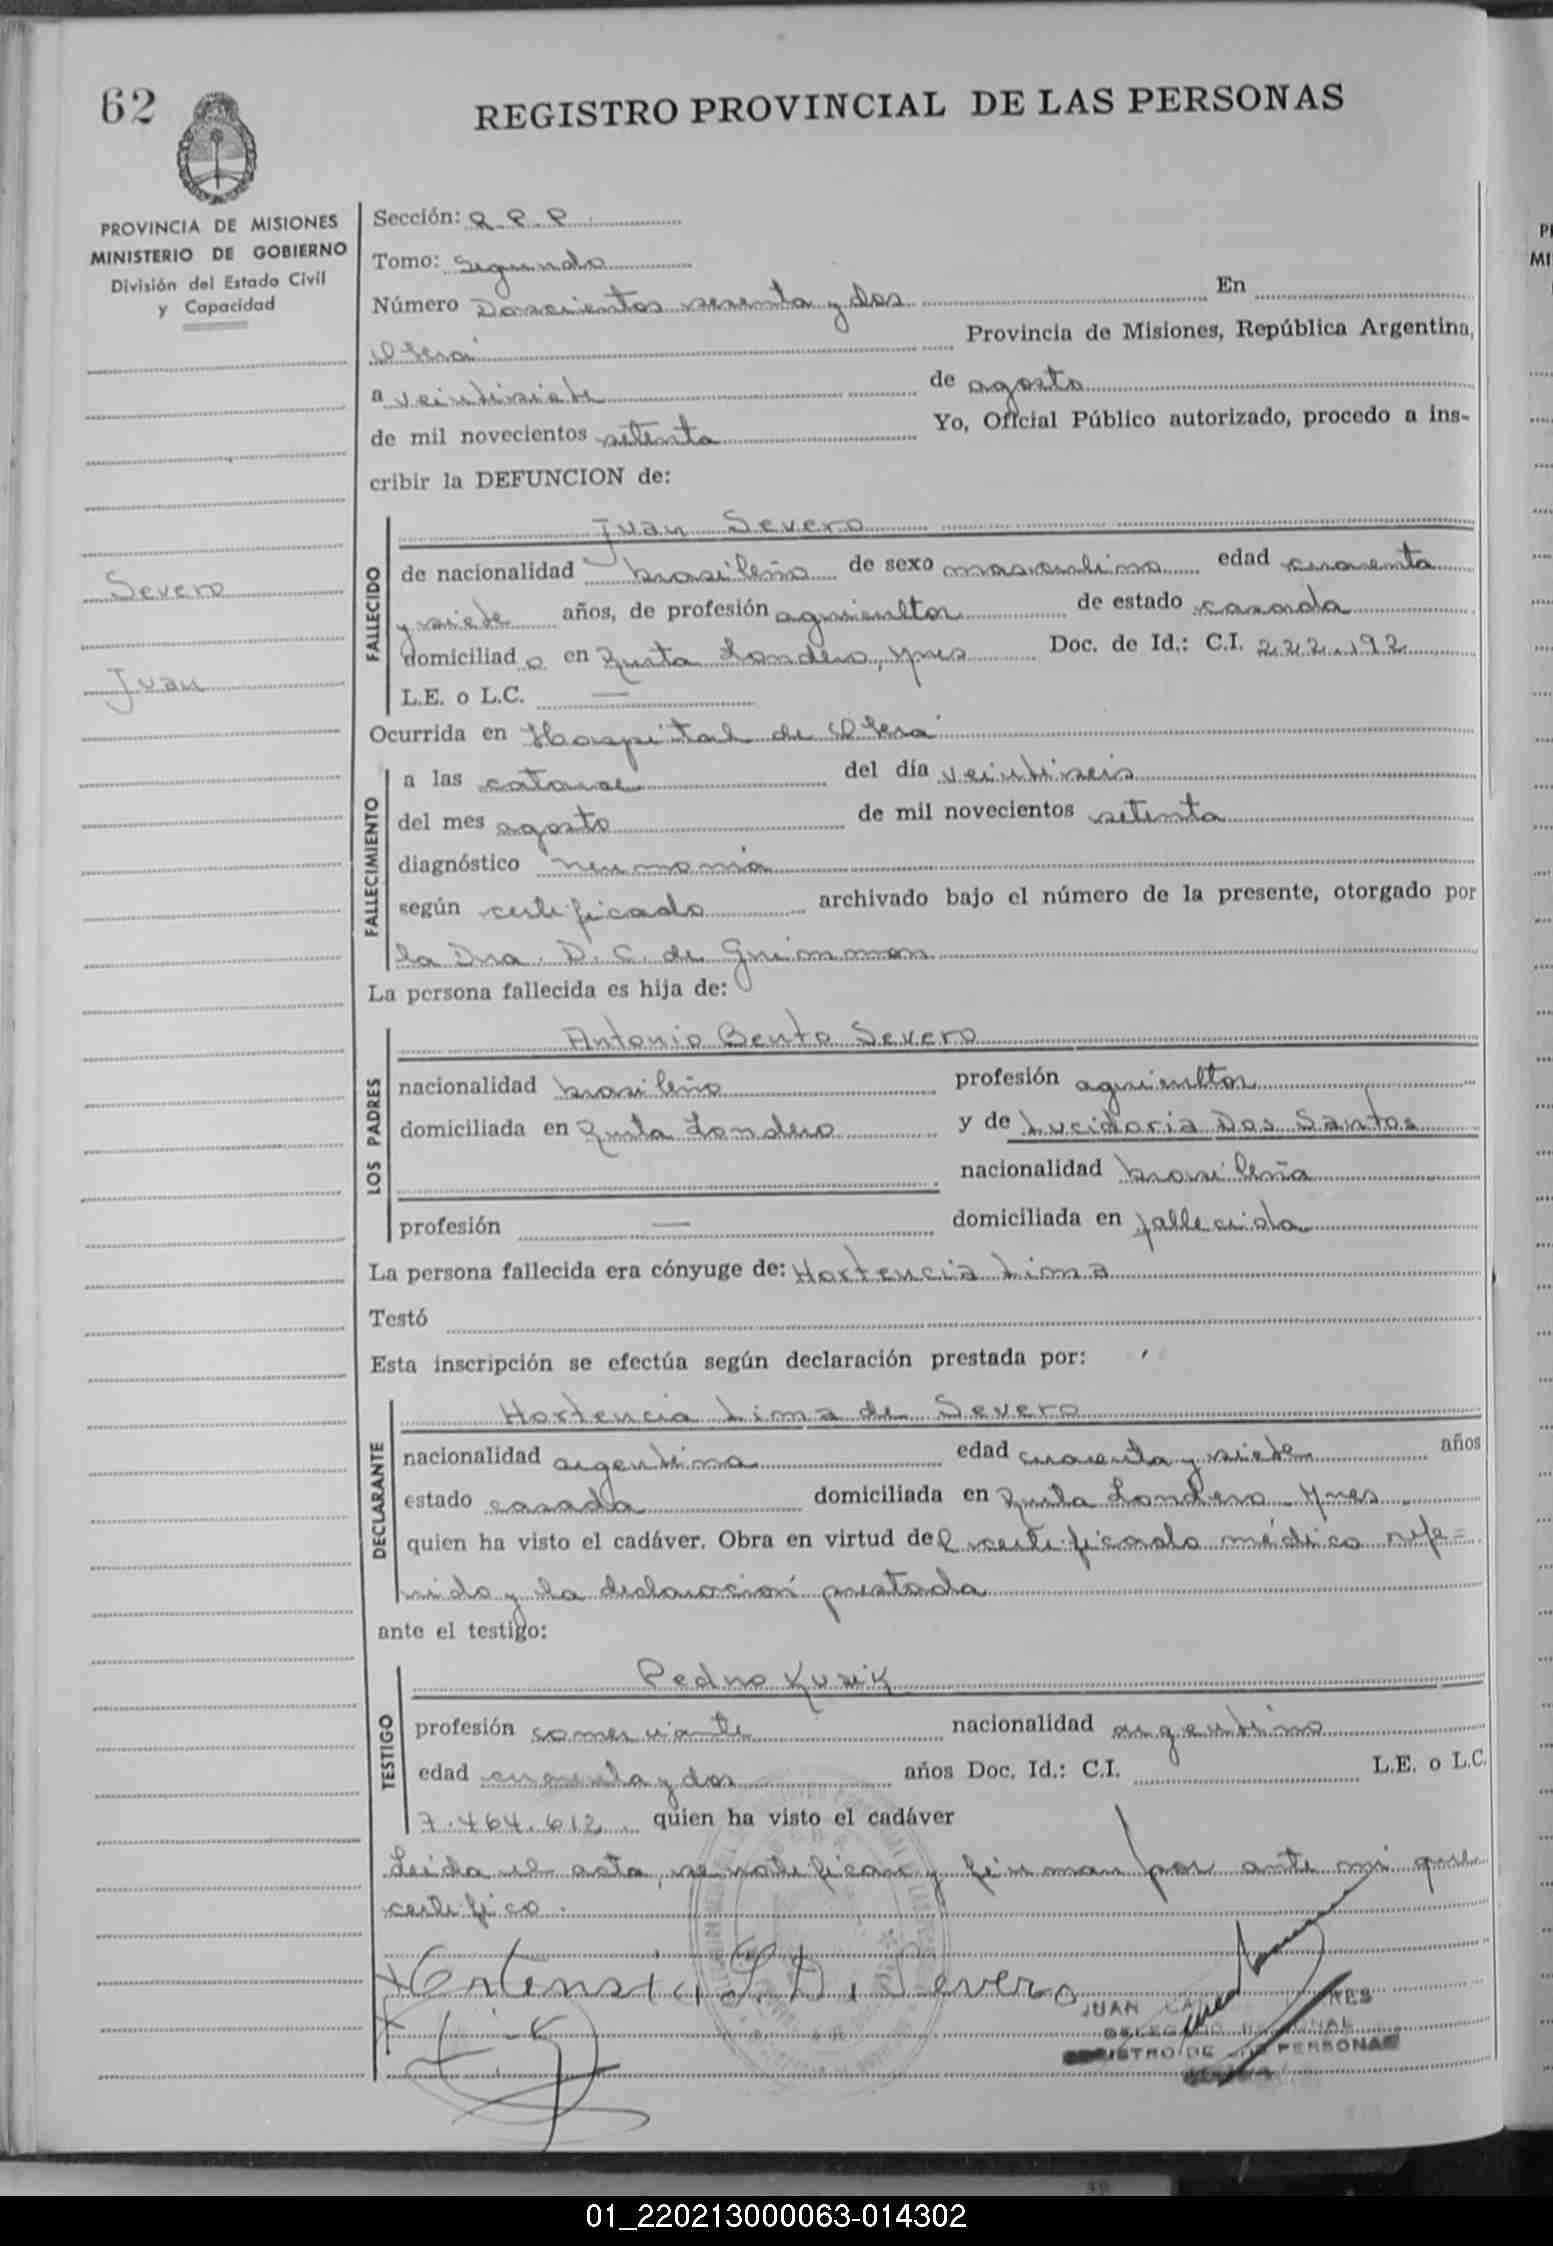 62
REGISTRO PROVINCIAL DE LAS PERSONAS
PROVINCIA DE MISIONES
MINISTERIO DE GOBIERNO
División del Estado Civil
y Capacidad
Severo
Juan
Sección: R. P. P.
Tomo: Segundo
Número Doscientos sesenta y dos En
Oberá Provincia de Misiones, República Argentina,
a veintisiete de agosto
de mil novecientos setenta Yo, Oficial Público autorizado, procedo a ins-
cribir la DEFUNCION de:
FALLECIDO
Juan Severo
de nacionalidad brasileño de sexo masculino edad cuarenta
y siete años, de profesión agricultor de estado casado
domiciliado en Londero, Mnes Doc. de Id.: C.I. 222.192
L.E. o L.C. —
Ocurrida en Hospital de Oberá
FALLECIMIENTO
a las catorce del día veintiseis
del mes agosto de mil novecientos setenta
diagnóstico neumonia
según certificado archivado bajo el número de la presente, otorgado por
la Dra. D. C. de
La persona fallecida es hija de:
LOS PADRES
Antonio Bento Severo
nacionalidad brasileño profesión agricultor
domiciliada en Londero y de Lucidoria Dos Santos
nacionalidad brasileña
profesión — domiciliada en fallecida
La persona fallecida era cónyuge de: Hortencia Lima
Testó
Esta inscripción se efectúa según declaración prestada por:
DECLARANTE
Hortencia Lima de Severo
nacionalidad argentina edad cuarenta y siete años
estado casada domiciliada en Londero Mnes
quien ha visto el cadáver. Obra en virtud del certificado médico refe=
rido y la declaración prestada
ante el testigo:
TESTIGO
Pedro Kusik
profesión comerciante nacionalidad argentino
edad cuarenta y dos años Doc. Id.: C.I. L.E. o L.C.
7.464.612 quien ha visto el cadáver
Leida el acta, se notifican y firman por ante mi que
certifico.
Ortensia L. D. Severo
JUAN
DELEGADO REGIONAL
REGISTRO DE LAS PERSONAS
01_220213000063-014302